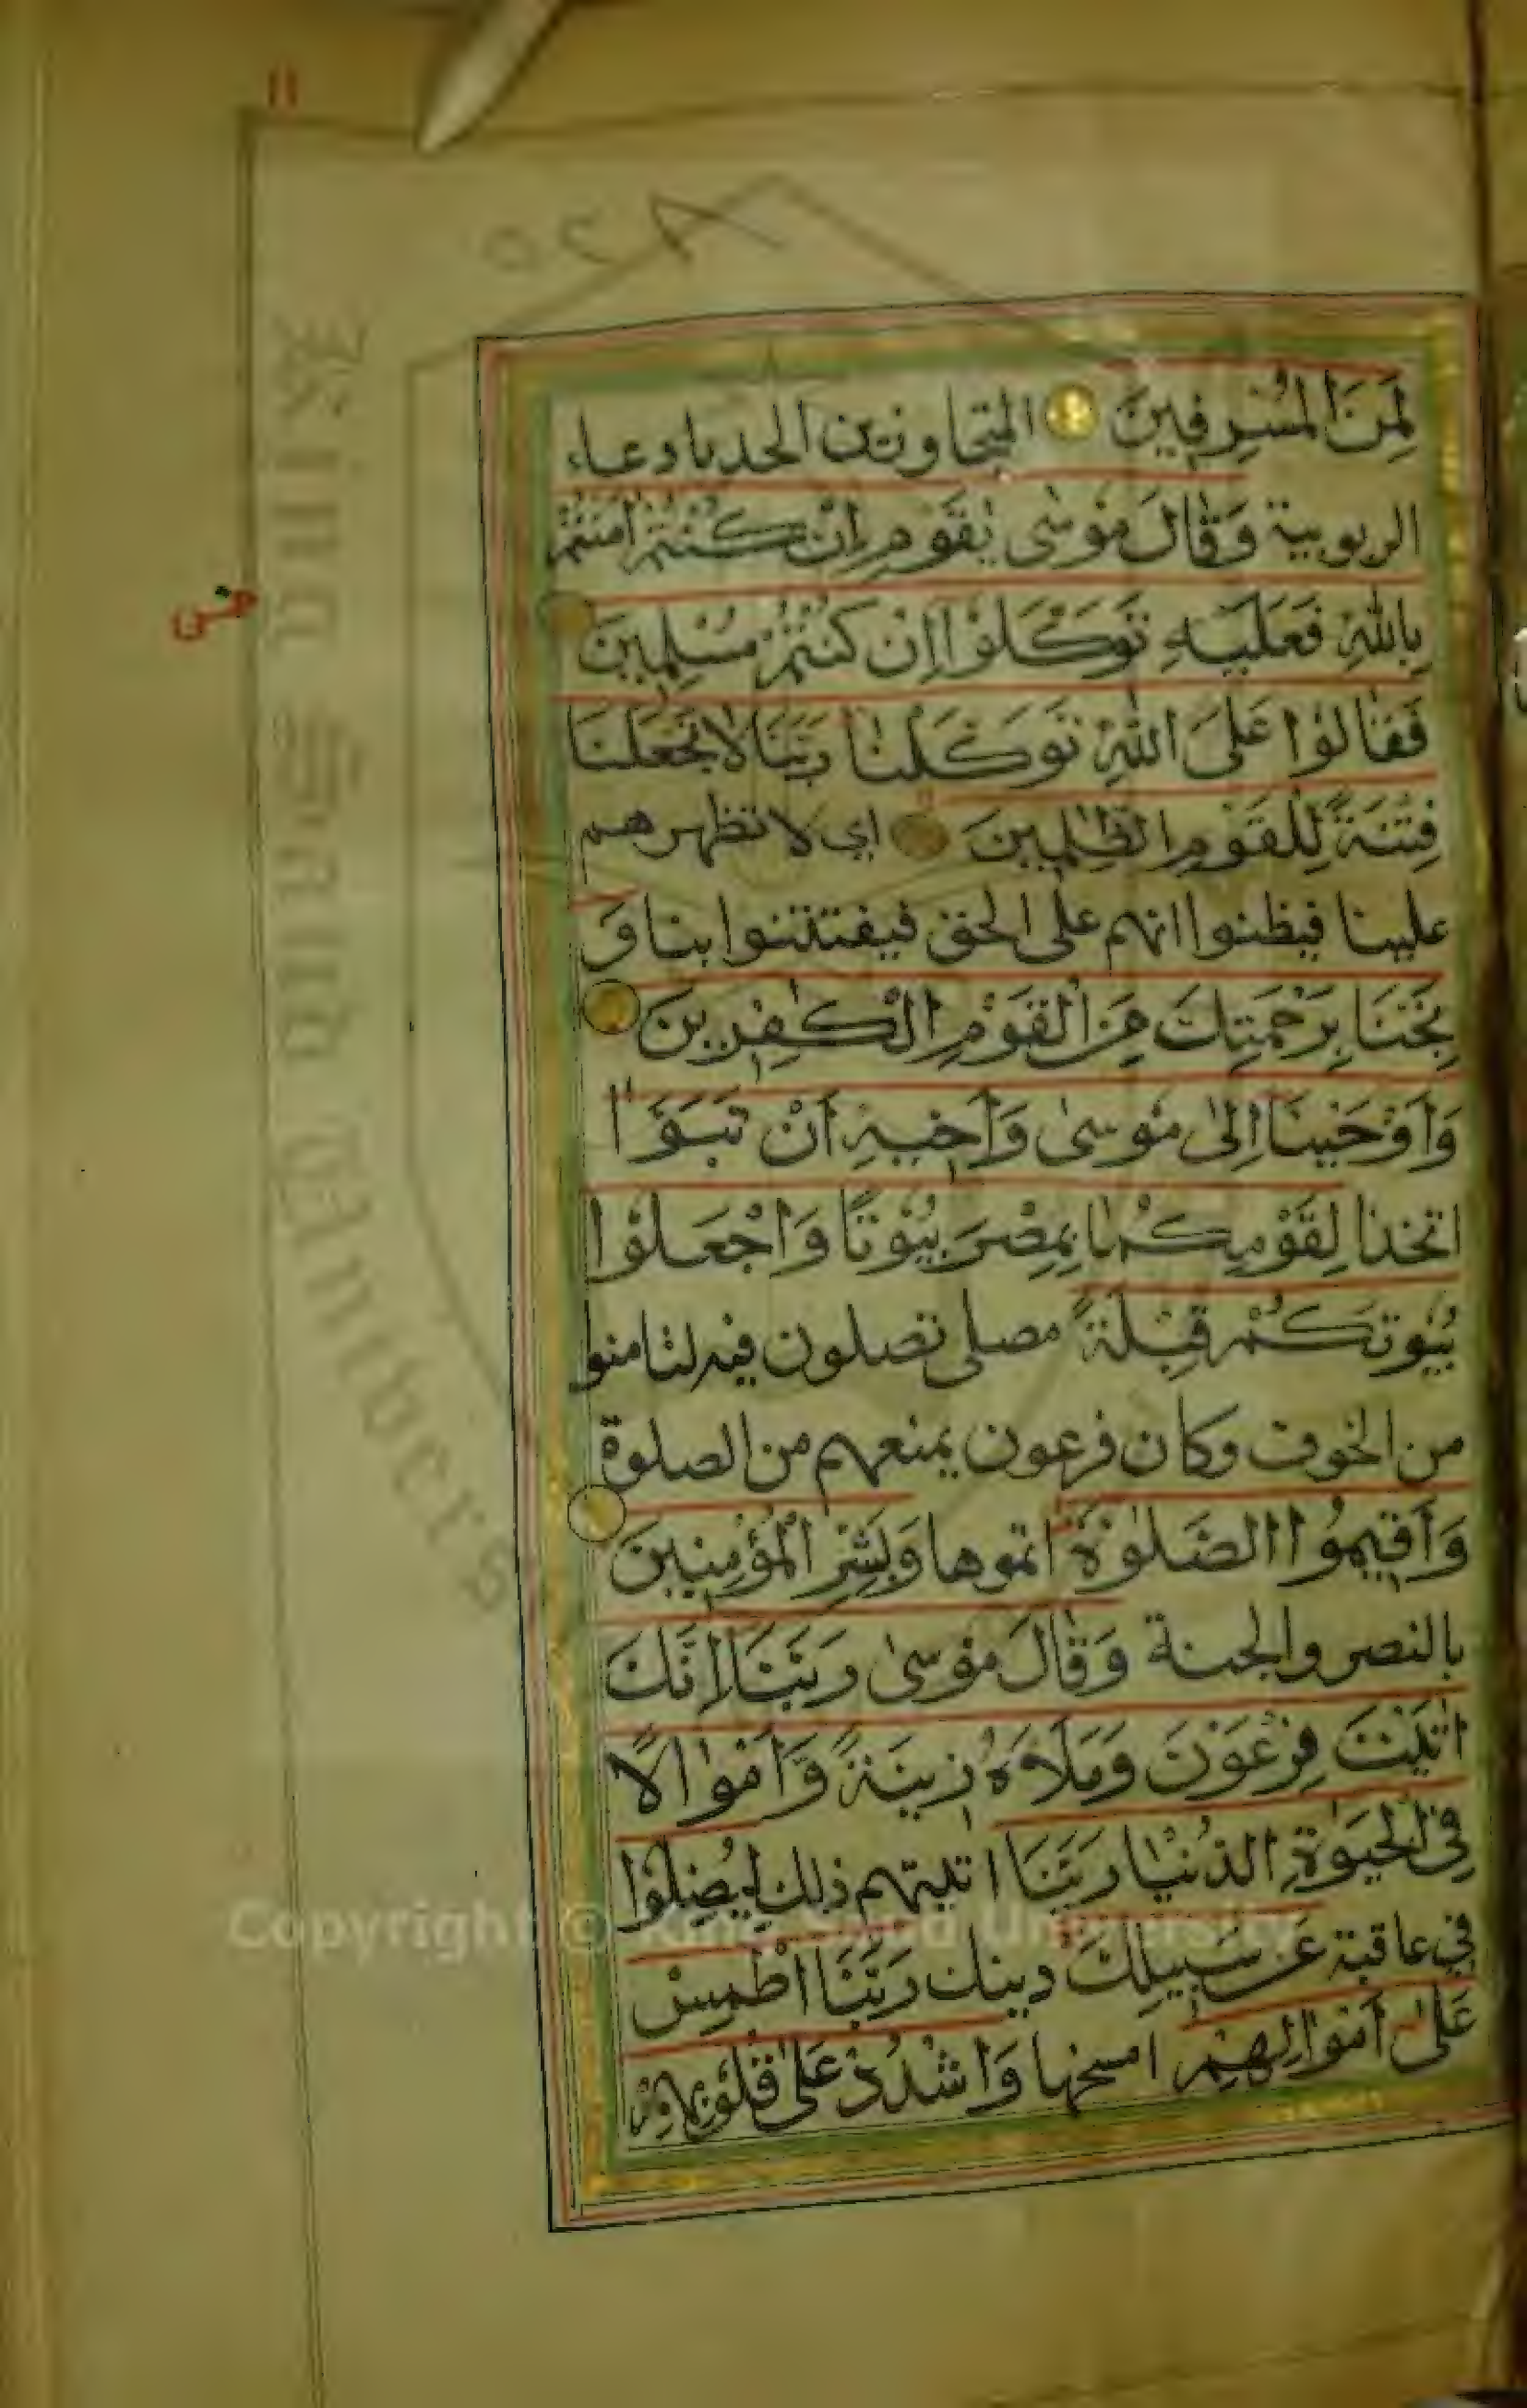 ١١
٥٢٨
لَمِنَ الْمُسْرِفِينَ المتجاوزين الحد بادعاء
الربوبية وَقَالَ مُوسٰى يٰقَوْمِ اِنْ كُنْتُمْ اٰمَنْتُمْ
بِاللّٰهِ فَعَلَيْهِ تَوَكَّلُوْا اِنْ كُنْتُمْ مُسْلِمِينَ
خمس
فَقَالُوْا عَلَى اللّٰهِ تَوَكَّلْنَا رَبَّنَا لَا تَجْعَلْنَا
فِتْنَةً لِلْقَوْمِ الظّٰلِمِينَ اي لا تظهرهم
علينا فيظنوا انهم على الحق فيفتتنوا بنا وَ
نَجِّنَا بِرَحْمَتِكَ مِنَ الْقَوْمِ الْكٰفِرِينَ
وَاَوْحَيْنَا اِلٰى مُوسٰى وَاَخِيهِ اَنْ تَبَوَّاٰ
اتخذا لِقَوْمِكُمَا بِمِصْرَ بُيُوْتًا وَاجْعَلُوْا
بُيُوتَكُمْ قِبْلَةً مصلى تصلون فيه لتامنوا
من الخوف وكان فرعون يمنعهم من الصلوة
وَاَقِيمُوا الصَّلٰوةَ اتموها وَبَشِّرِ الْمُؤْمِنِينَ
بالنصر والجنة وَقَالَ مُوسٰى رَبَّنَا اِنَّكَ
اٰتَيْتَ فِرْعَوْنَ وَمَلَاَهُ زِينَةً وَاَمْوَالًا
فِى الْحَيٰوةِ الدُّنْيَا رَبَّنَا اتيتهم ذلك لِيُضِلُّوْا
في عاقبة عَنْ سَبِيلِكَ دينك رَبَّنَا اطْمِسْ
عَلٰى اَمْوَالِهِمْ امسخها وَاشْدُدْ عَلٰى قُلُوبِهِمْ
Copyright © King Saud University
King Saud University